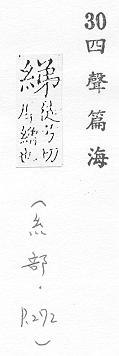 30 四聲篇海
綈
徒兮切
厚繒也
(糸部·P.292)